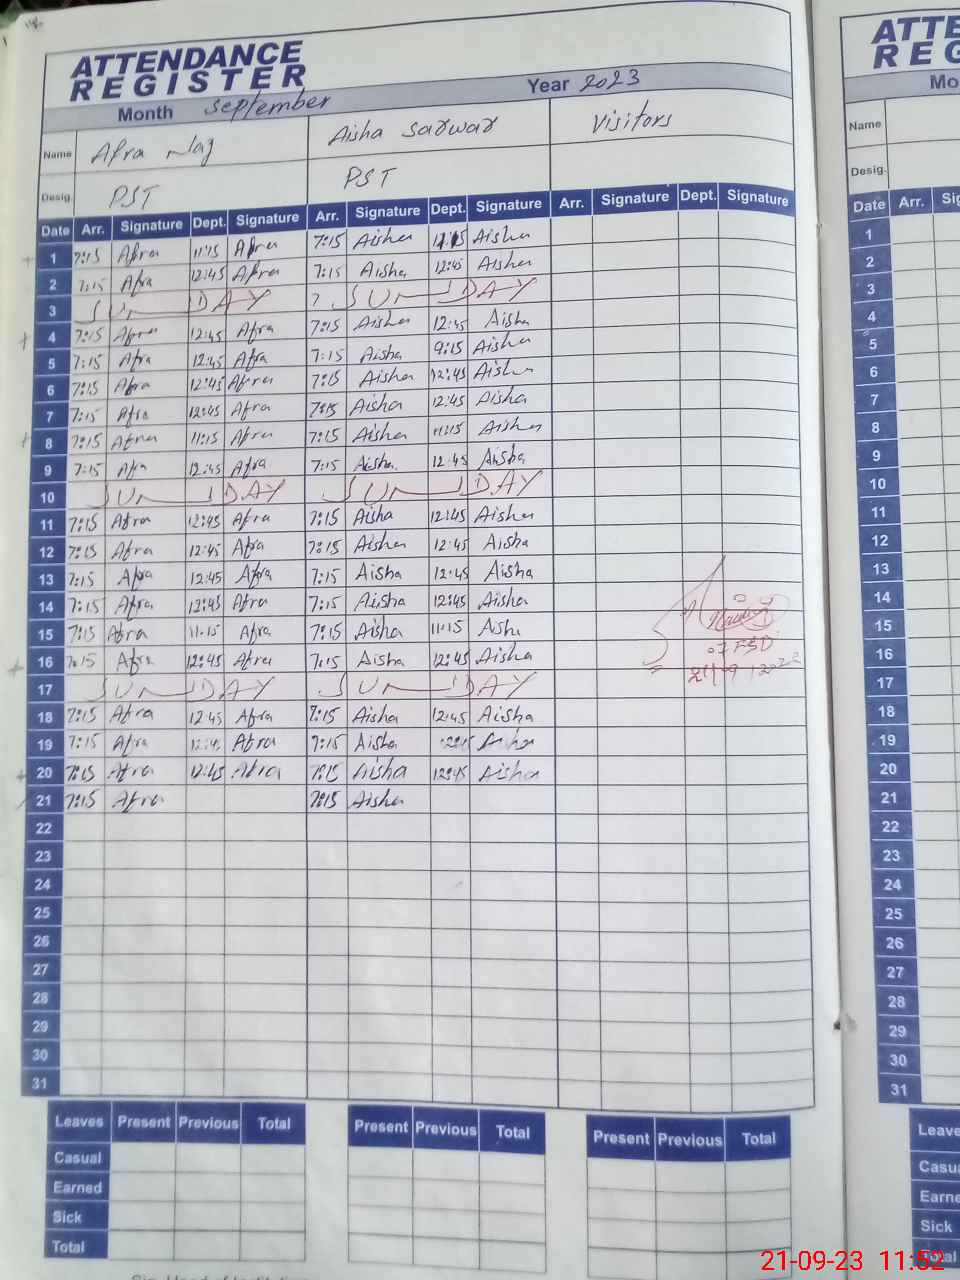 ATTENDANCE
REGISTER
Month September Year 2023
Name Afra Naz Aisha Sarwar Visitors
Desig. PST PST
Date Arr. Signature Dept. Signature Arr. Signature Dept. Signature Arr. Signature Dept. Signature
1 7:15 Afra 11:15 Afra 7:15 Aisha 11:15 Aisha
2 7:15 Afra 12:45 Afra 7:15 Aisha 12:45 Aisha
3 SUNDAY SUNDAY
4 7:15 Afra 12:45 Afra 7:15 Aisha 12:45 Aisha
5 7:15 Afra 12:45 Afra 7:15 Aisha 9:15 Aisha
6 7:15 Afra 12:45 Afra 7:15 Aisha 12:45 Aisha
7 7:15 Afra 12:45 Afra 7:15 Aisha 12:45 Aisha
8 7:15 Afra 11:15 Afra 7:15 Aisha 11:15 Aisha
9 7:15 Afra 12:45 Afra 7:15 Aisha 12:45 Aisha
10 SUNDAY SUNDAY
11 7:15 Afra 12:45 Afra 7:15 Aisha 12:45 Aisha
12 7:15 Afra 12:45 Afra 7:15 Aisha 12:45 Aisha
13 7:15 Afra 12:45 Afra 7:15 Aisha 12:45 Aisha
14 7:15 Afra 12:45 Afra 7:15 Aisha 12:45 Aisha
15 7:15 Afra 11:15 Afra 7:15 Aisha 11:15 Aisha
16 7:15 Afra 12:45 Afra 7:15 Aisha 12:45 Aisha
17 SUNDAY SUNDAY
18 7:15 Afra 12:45 Afra 7:15 Aisha 12:45 Aisha
19 7:15 Afra 12:45 Afra 7:15 Aisha 12:45 Aisha
20 7:15 Afra 12:45 Afra 7:15 Aisha 12:45 Aisha
21 7:15 Afra 7:15 Aisha
22
23
24
25
26
27
28
29
30
31
Leaves Present Previous Total Present Previous Total Present Previous Total
Casual
Earned
Sick
Total
ATTE
REG
Mo
Name
Desig.
Date Arr. Sig
1
2
3
4
5
6
7
8
9
10
11
12
13
14
15
16
17
18
19
20
21
22
23
24
25
26
27
28
29
30
31
Leave
Casu
Earne
Sick
Total
21-09-23 11:52